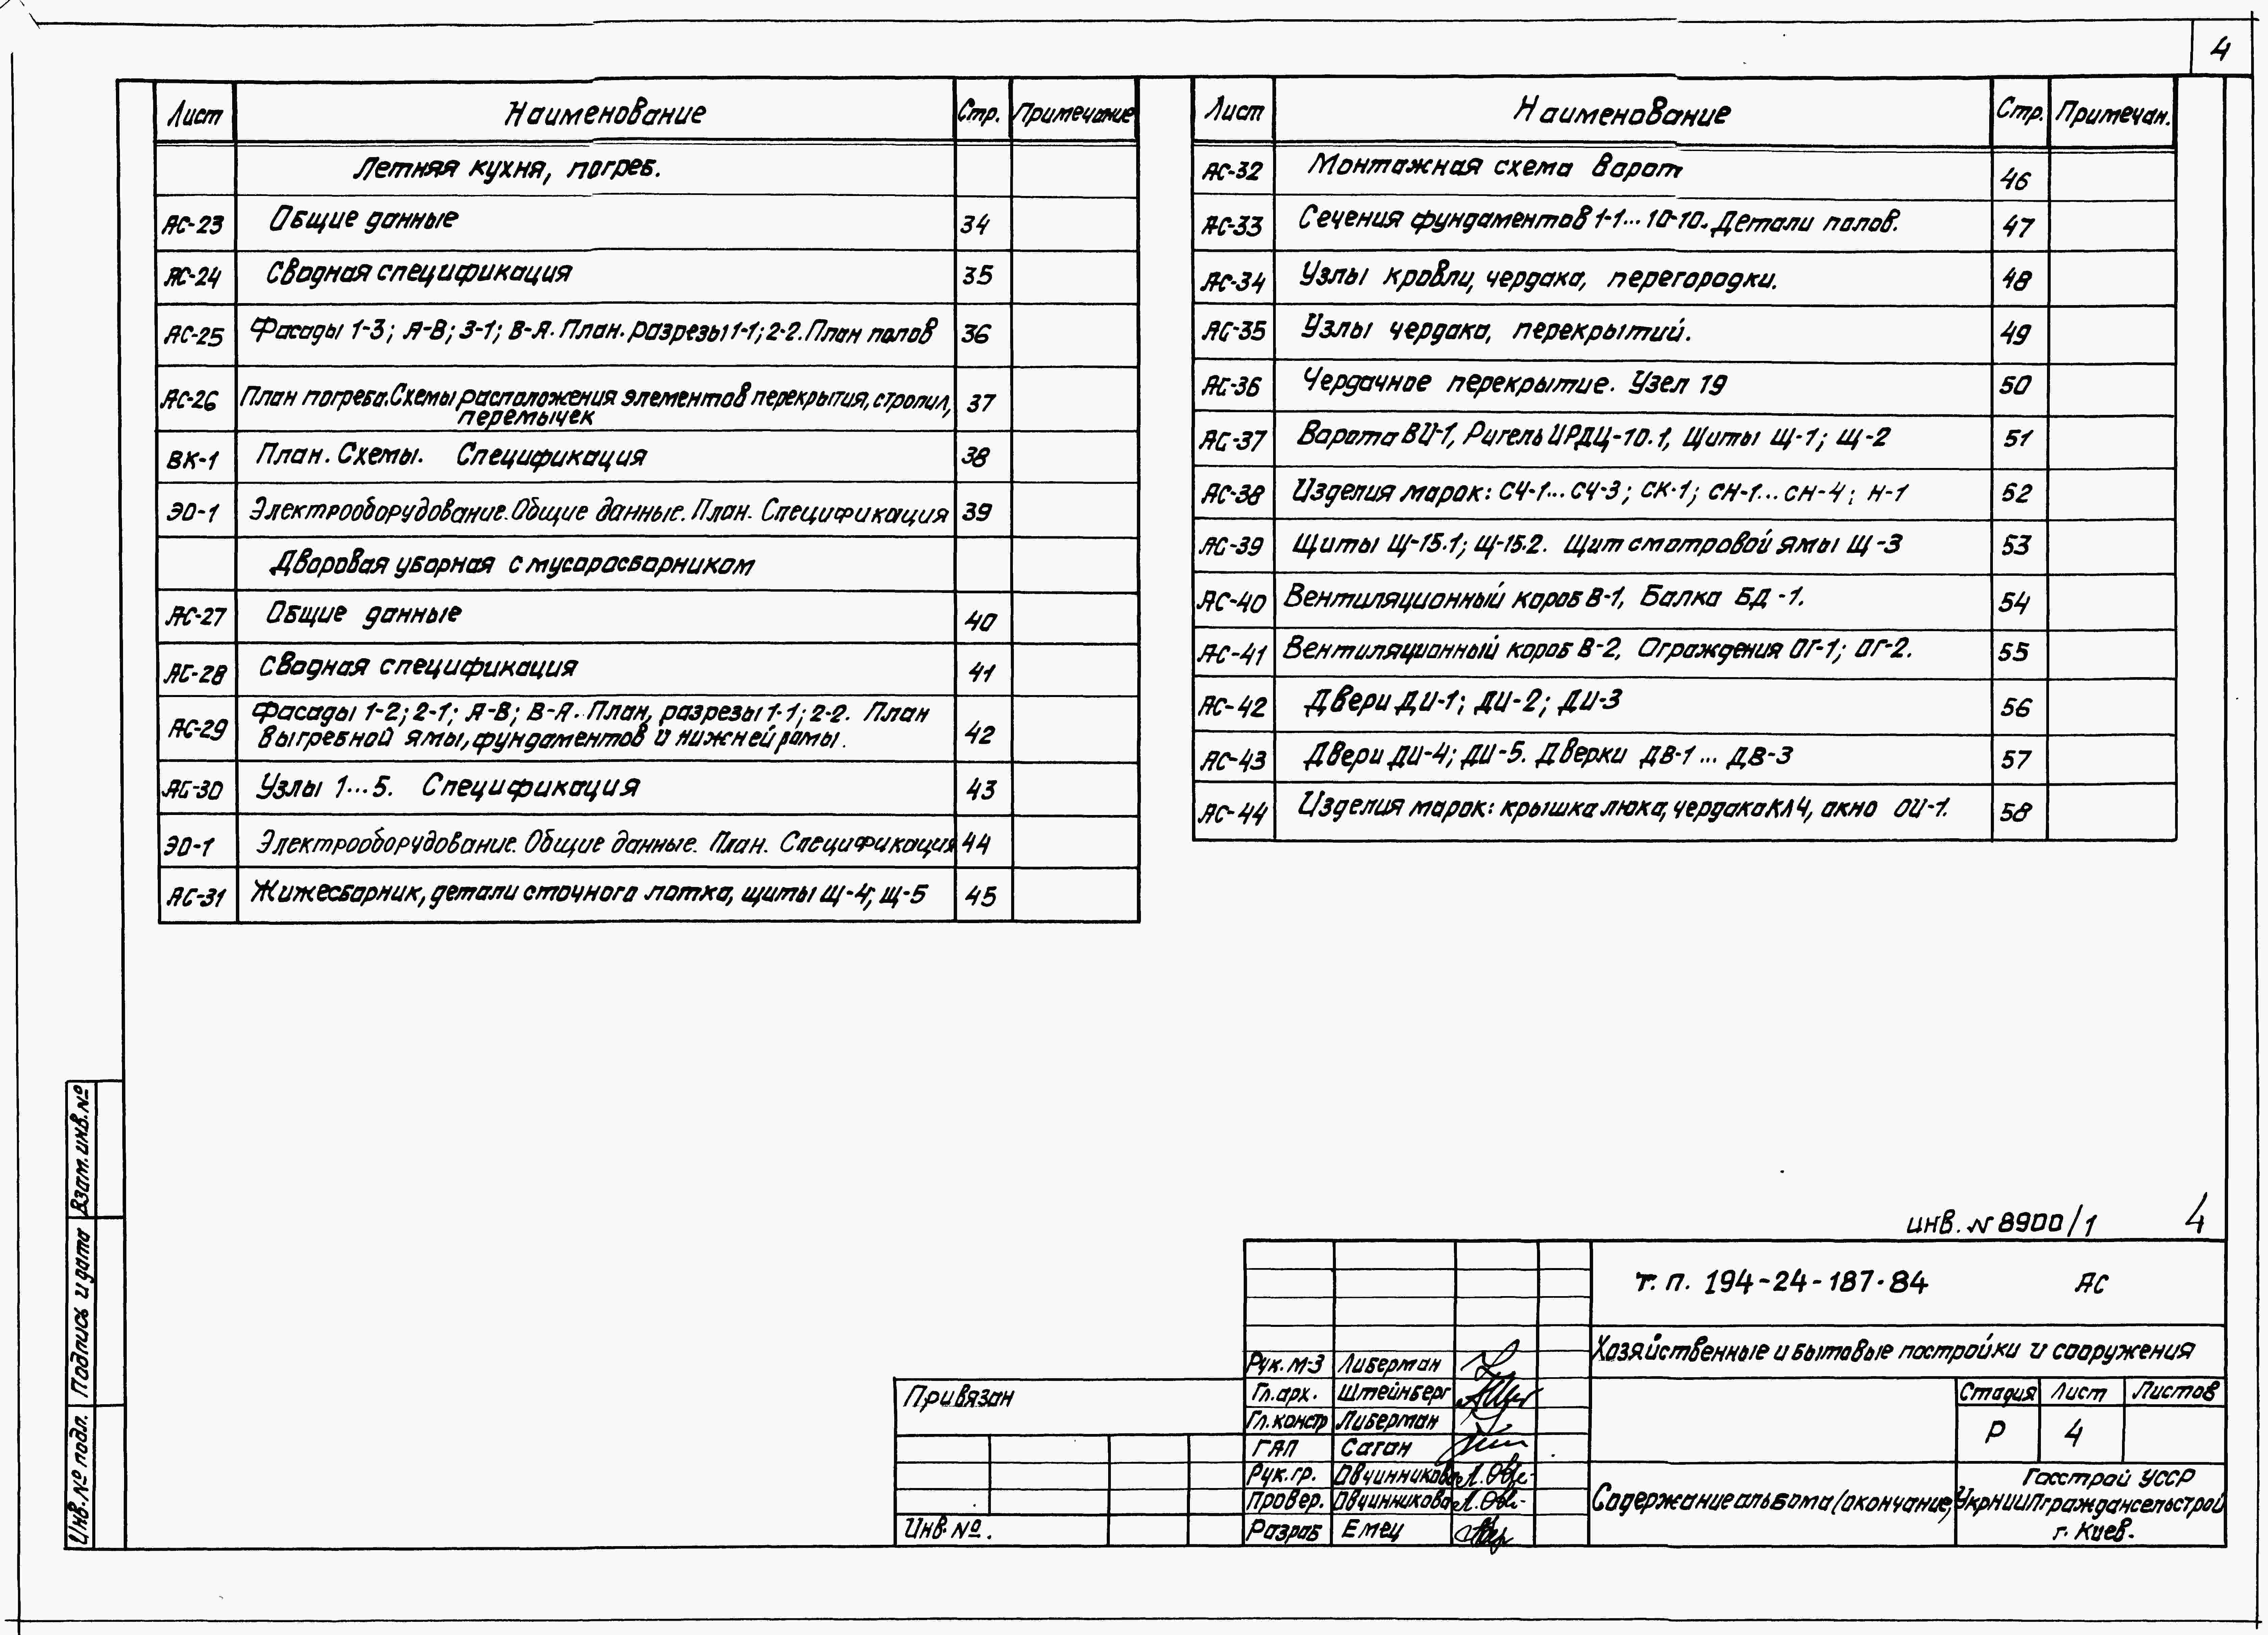 4
Лист Наименование Стр. Примечание
Летняя кухня, погреб.
АС-23 Общие данные 34
АС-24 Сводная спецификация 35
АС-25 Фасады 1-3; А-В; 3-1; В-А. План. разрезы 1-1; 2-2. План полов 36
АС-26 План погреба. Схемы расположения элементов перекрытия, стропил, 37
перемычек
ВК-1 План. Схемы. Спецификация 38
ЭО-1 Электрооборудование. Общие данные. План. Спецификация 39
Дворовая уборная с мусоросборником
АС-27 Общие данные 40
АС-28 Сводная спецификация 41
АС-29 Фасады 1-2; 2-1; А-В; В-А. План, разрезы 1-1; 2-2. План 42
выгребной ямы, фундаментов и нижней рамы.
АС-30 Узлы 1...5. Спецификация 43
ЭО-1 Электрооборудование. Общие данные. План. Спецификация 44
АС-31 Жижесборник, детали сточного лотка, щиты Щ-4, Щ-5 45
Лист Наименование Стр. Примечан.
АС-32 Монтажная схема ворот 46
АС-33 Сечения фундаментов 1-1... 10-10. Детали полов. 47
АС-34 Узлы кровли, чердака, перегородки. 48
АС-35 Узлы чердака, перекрытий. 49
АС-36 Чердачное перекрытие. Узел 19 50
АС-37 Ворота ВИ-1, Ригель ИРДЦ-10.1, Щиты Щ-1; Щ-2 51
АС-38 Изделия марок: СЧ-1... СЧ-3; СК-1; СН-1... СН-4; Н-1 52
АС-39 Щиты Щ-15.1; Щ-15.2. Щит смотровой ямы Щ-3 53
АС-40 Вентиляционный короб В-1, Балка БД-1. 54
АС-41 Вентиляционный короб В-2, Ограждения ОГ-1; ОГ-2. 55
АС-42 Двери ДИ-1; ДИ-2; ДИ-3 56
АС-43 Двери ДИ-4; ДИ-5. Дверки ДВ-1 ... ДВ-3 57
АС-44 Изделия марок: крышка люка, чердака КЛЧ, окно ОИ-1. 58
Взам. инв. №
Подпись и дата
Инв. № подл.
инв. N 8900/1 4
т. п. 194-24-187.84 АС
Хозяйственные и бытовые постройки и сооружения
Рук. М-3 Либерман
Гл. арх. Штейнберг
Гл. констр Либерман
ГАП Саган
Рук. гр. Овчинникова
Провер. Овчинникова
Разраб Емец
Привязан
Инв. №.
Стадия Лист Листов
Р 4
Содержание альбома (окончание)
Госстрой УССР
УкрНИИПграждансельстрой
г. Киев.